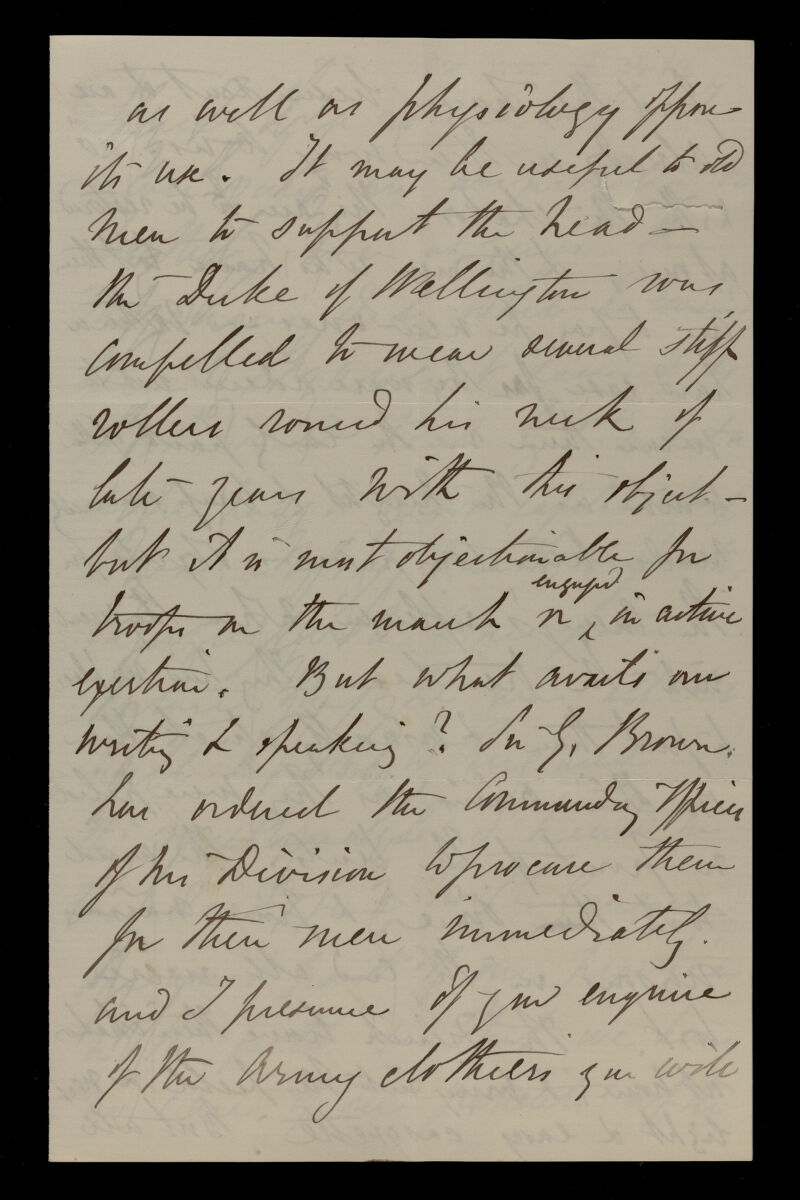 as well as physiology oppose
its use. It may be useful to old
men to support the head —
the Duke of Wellington was
compelled to wear several stiff
rollers round his neck of
late years with this object —
but it is most objectionable for
troops on the march or engaged in active
exertion. But what avails our
writing & speaking? Sir G. Brown.
has ordered the Commanding Officers
of his Division to procure them
for their men immediately.
and I presume if you enquire
of the Army clothiers you will